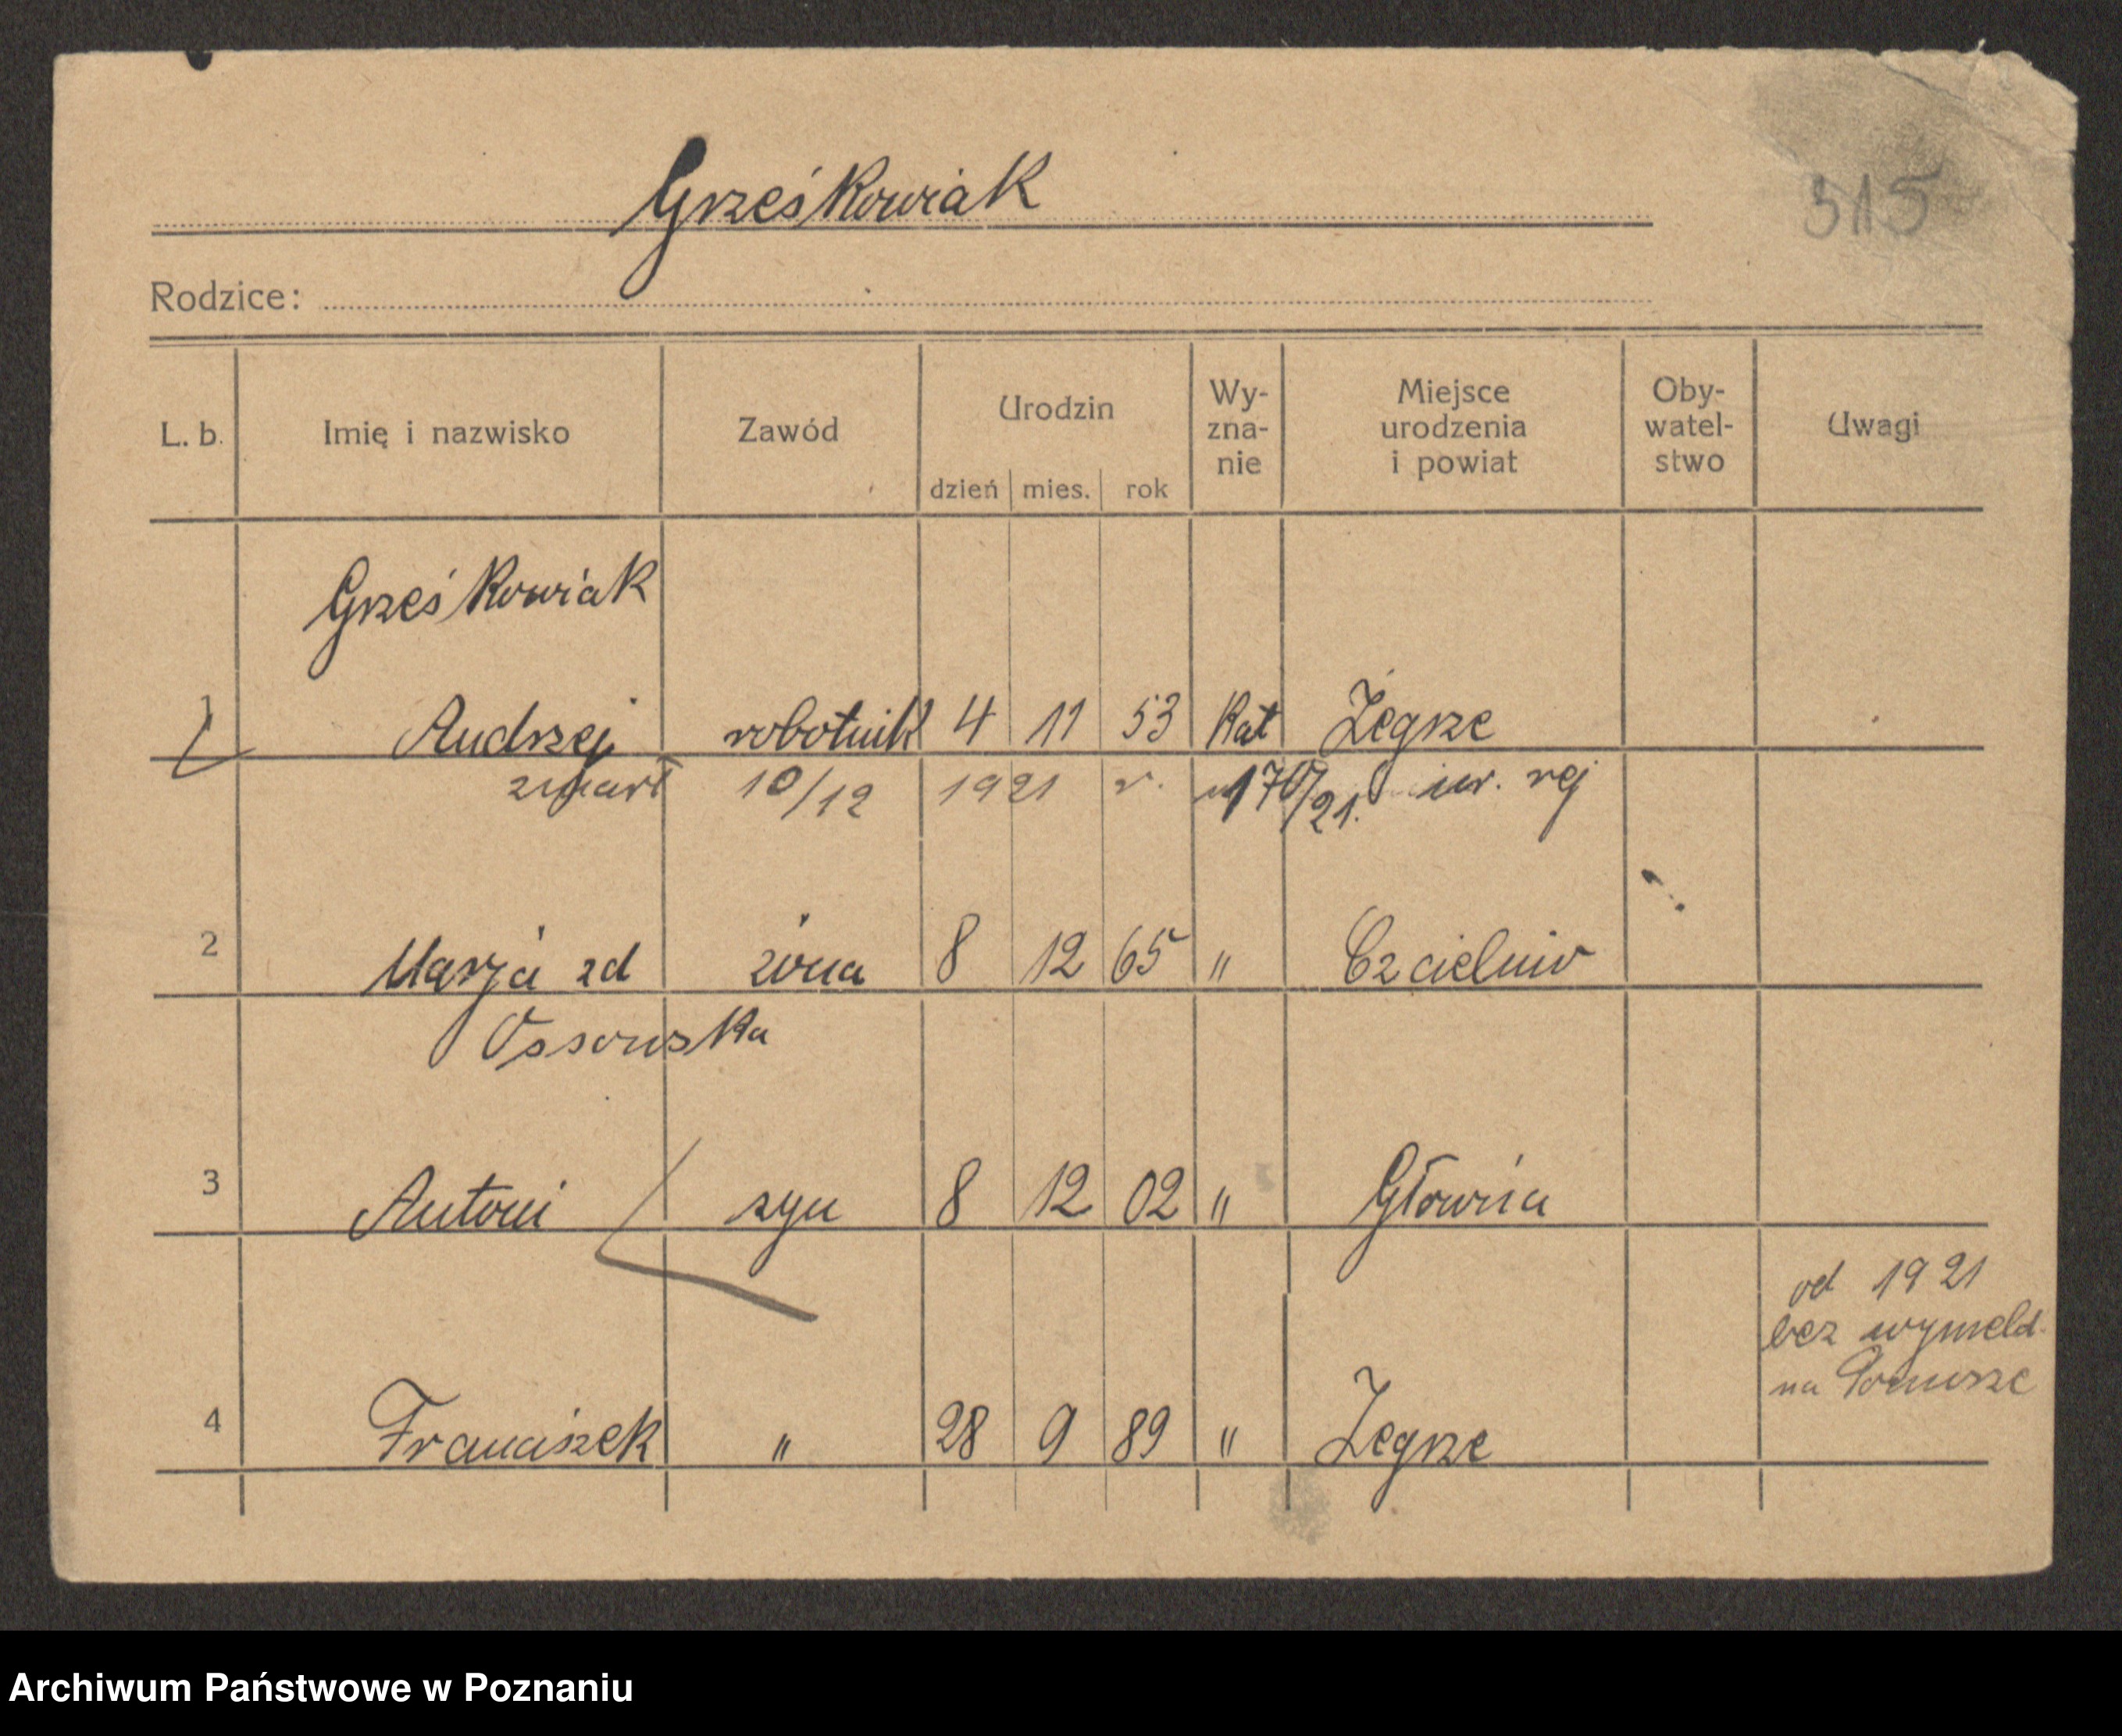 Grześkowiak
315
Rodzice:
L. b. Imię i nazwisko Zawód Urodzin dzień mies. rok Wy-zna-nie Miejsce urodzenia i powiat Oby-watel-stwo Uwagi
Grześkowiak
1 Andrzej robotnik 4 11 53 Kat Żegrze
zmart 10/12 1921 r. 170/21. rej
2 Marja zd żona 8 12 65 " 
Ossowska
3 Antoni syn 8 12 02 " Główna
od 1921
bez wymeld.
na Pomorze
4 Franciszek " 28 9 89 " Żegrze
Archiwum Państwowe w Poznaniu